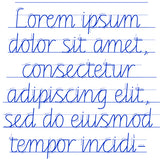 Lorem ipsum
dolor sit amet,
consectetur
adipiscing elit,
sed do eiusmod
tempor incidi-